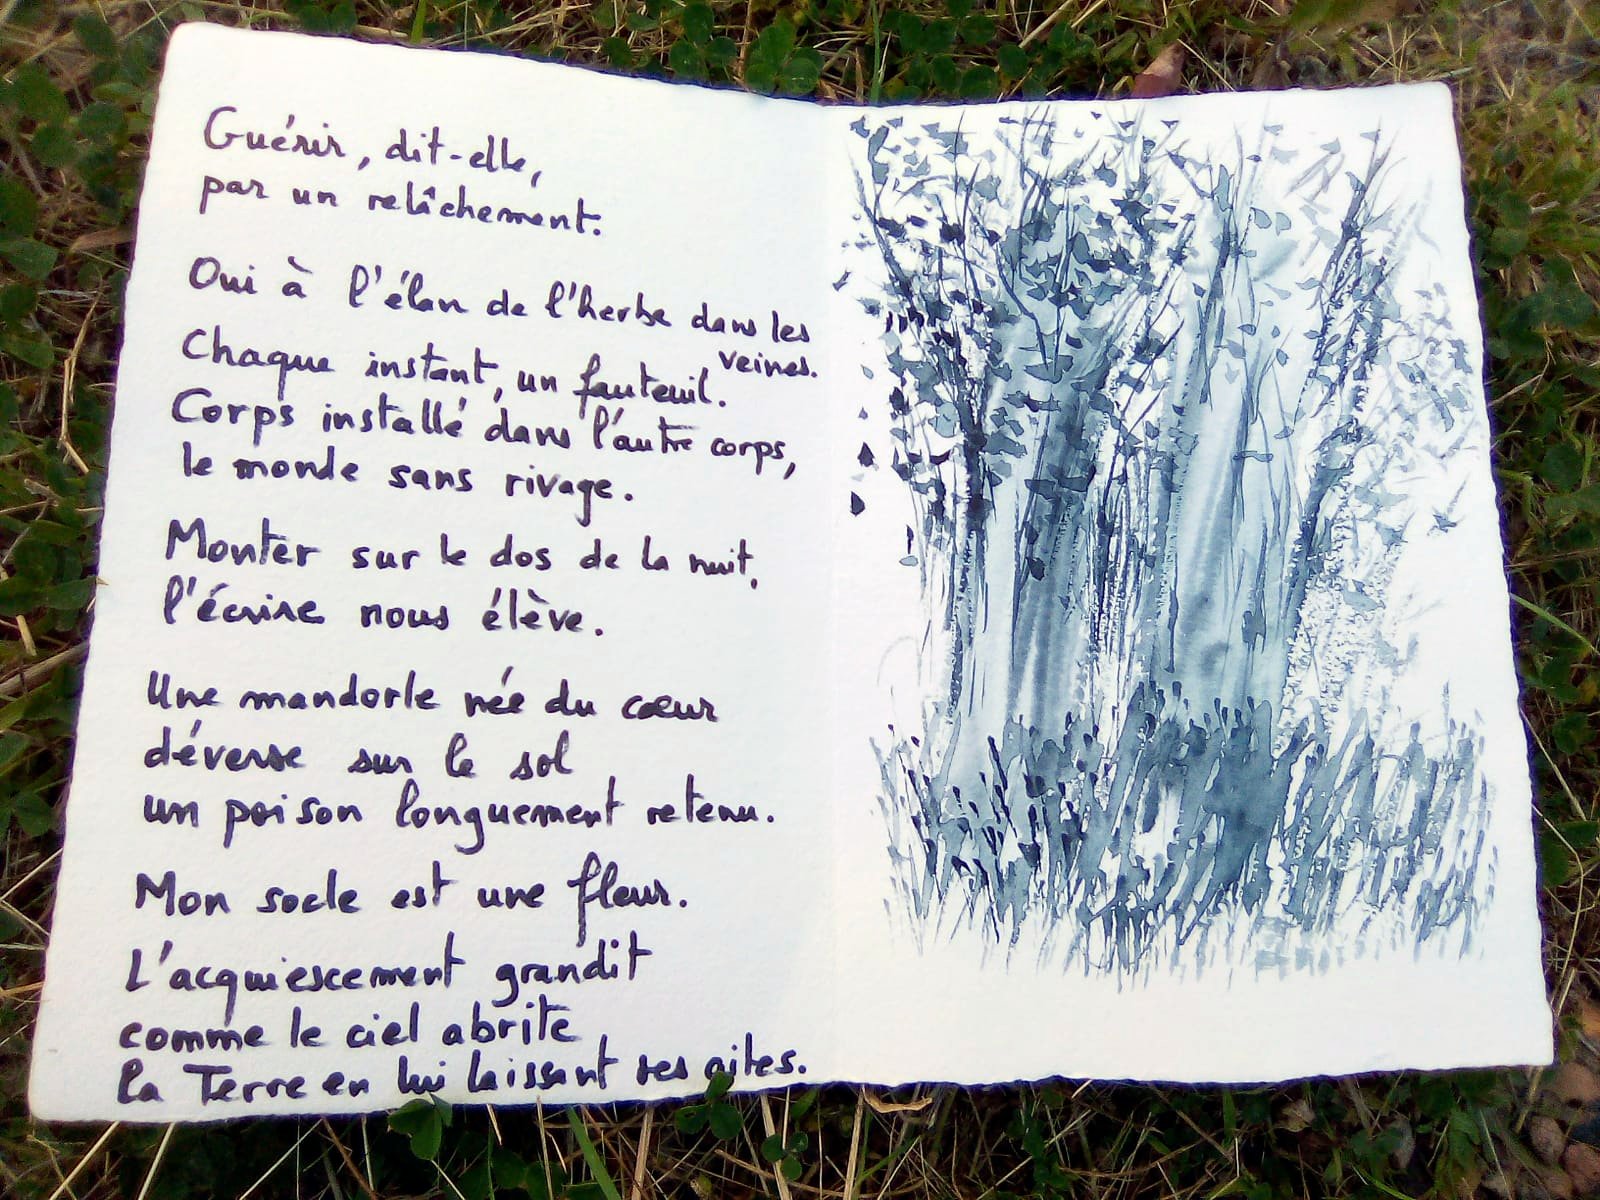 Guérir, dit-elle,
par un relâchement.
Oui à l'élan de l'herbe dans les
veines.
Chaque instant, un fauteuil.
Corps installé dans l'autre corps,
le monde sans rivage.
Monter sur le dos de la nuit,
l'écrire nous élève.
Une mandorle née du cœur
déverse sur le sol
un poison longuement retenu.
Mon socle est une fleur.
L'acquiescement grandit
comme le ciel abrite
la Terre en lui laissant ses ailes.